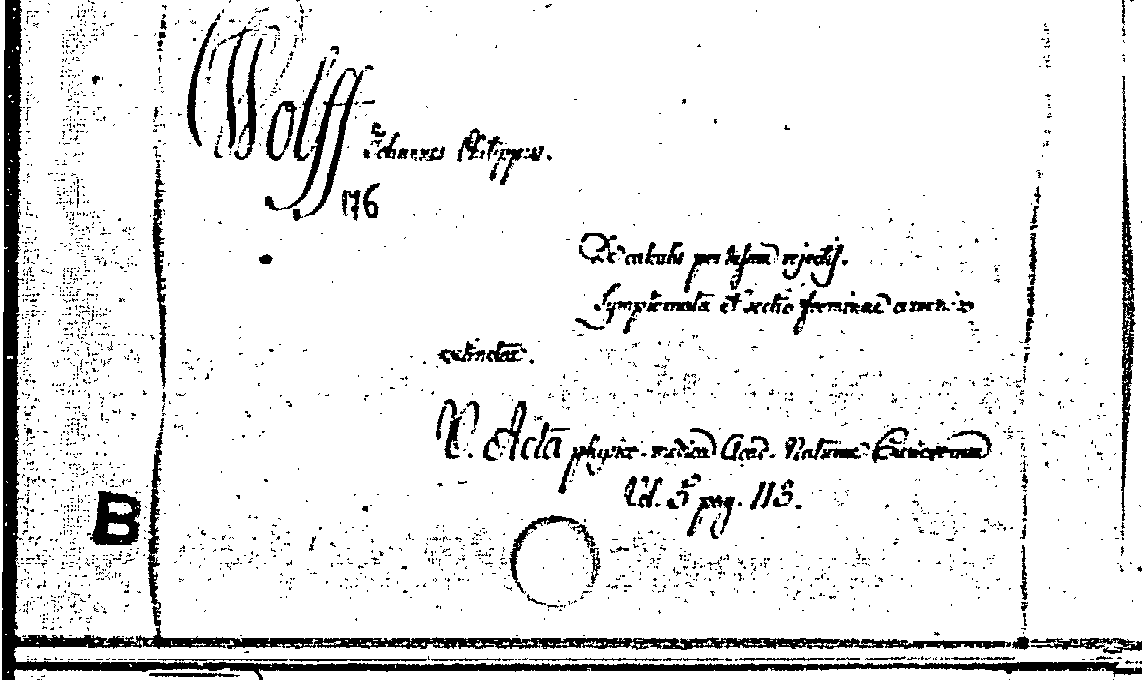 Wolff Johannes Philippus.
176
De calculis per vesicam rejectis.
Symptomata et sectio foeminae
extinctae.
V. Acta physico-medica Acad. Naturae Curiosorum
Vol. 5 pag. 113.
B